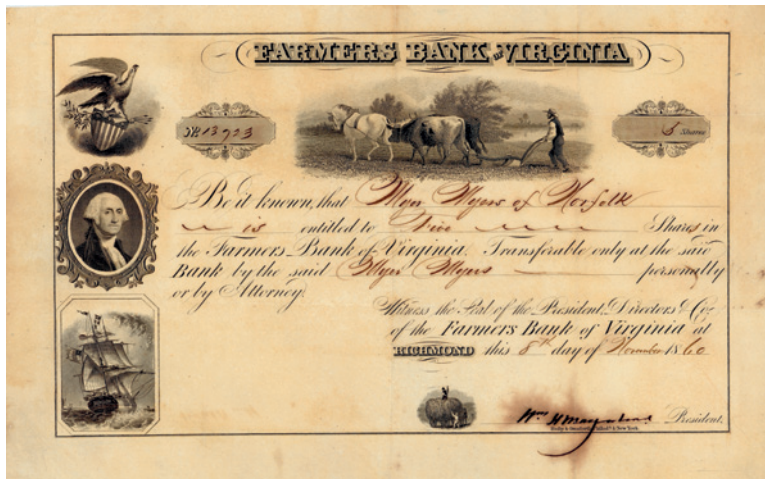 FARMERS BANK of VIRGINIA
No. 13923
5 Shares
Be it known, that Myer Myers of Norfolk
is entitled to Five Shares in
the Farmers Bank of Virginia. Transferable only at the said
Bank by the said Myer Myers personally
or by Attorney.
Witness the Seal of the President, Directors & Co.
of the Farmers Bank of Virginia at
RICHMOND this 8th day of November 1860
Wm H Macfarland President,
New York.